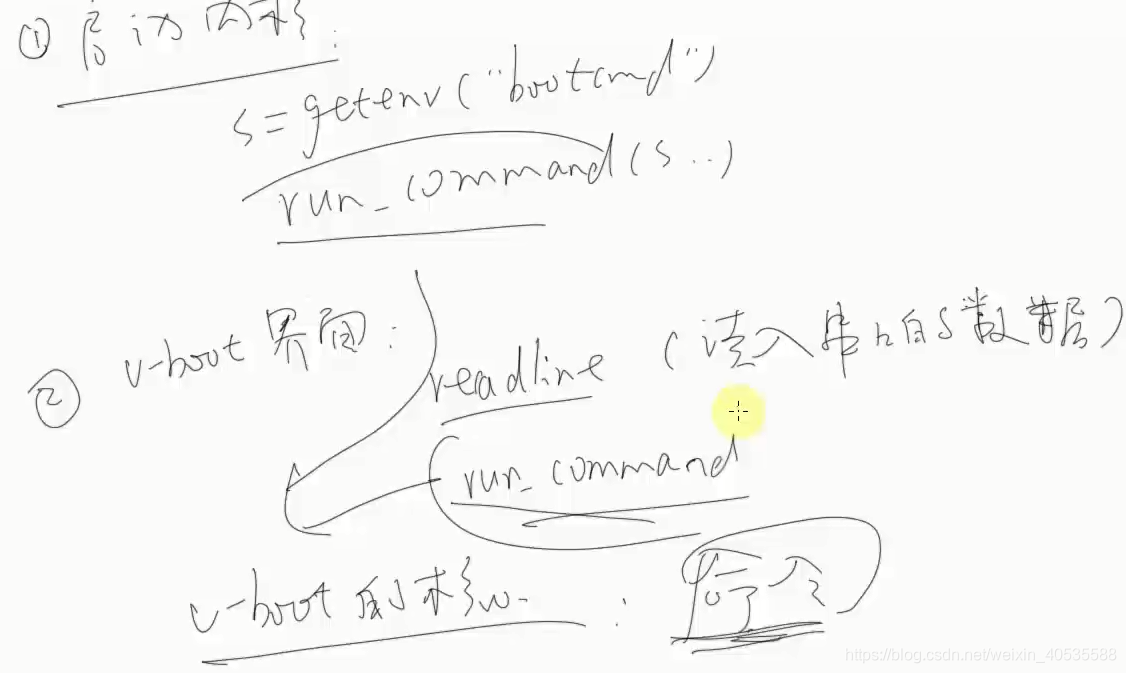 ① 启动内核:
s=getenv("bootcmd")
run_command(s..)
② u-boot 界面:
readline (读入串口的数据)
run_command
u-boot的核心: 命令
https://blog.csdn.net/weixin_40535588